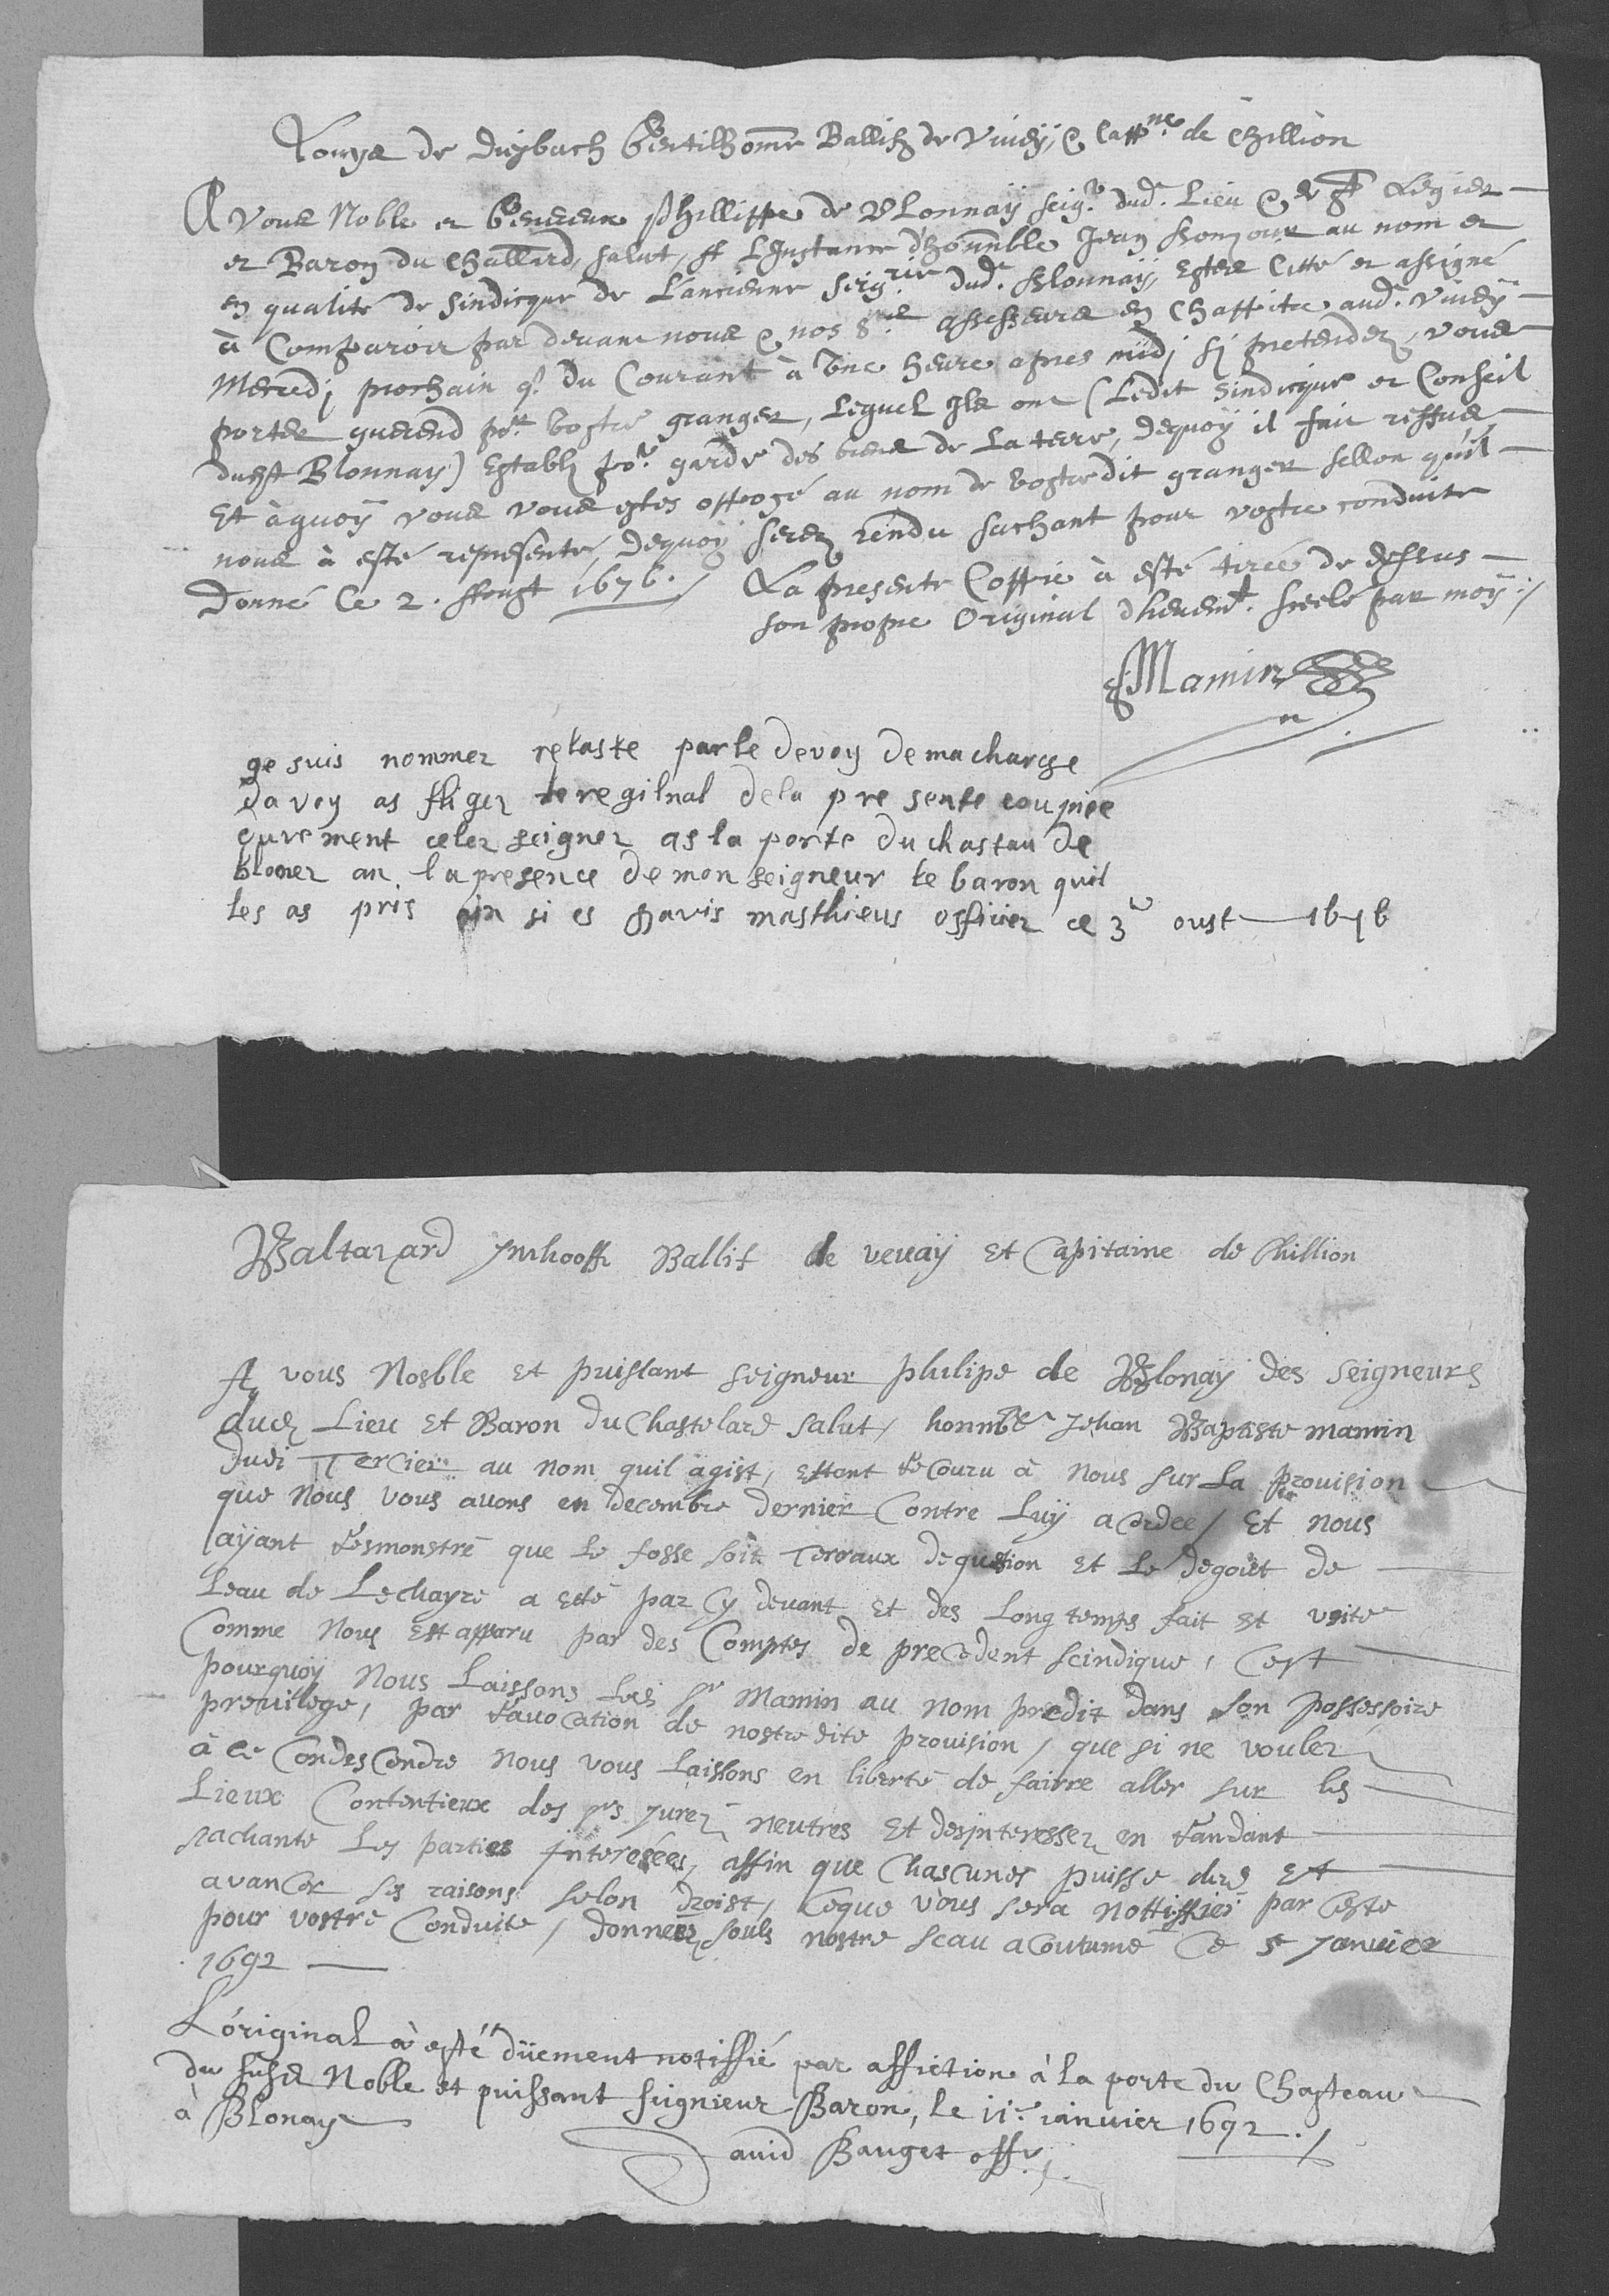 Louys de Diesbach Gentilhome Ballif de Vivey, & Capp.ne de Chillion
A Vous Noble et Genereux Phillippe de Blonnaÿ seig.r dud. Lieu & de St Legier
et Baron du Challard, salut, A LJnstance d'hounble Jean Bonjour au nom et
en qualité de sindicque de L'ancienne seig.rie dud. Blonnaÿ, Estes Citté et assigné
à Comparoir par devant nous & nos srs assesseurs en Chappitre aud. Vivey
Mercedj prochain 9. du Courant à Une heure apres midj si pretendez, vous
porter guerend po.r vostre granger, lequel Jls ont (Ledit sindicque et Conseil
dudt Blonnay) Establj po.r garde des biens de La terre, dequoÿ il fait reffus
Et àquoÿ vous vous estes opposé au nom de vostredit granger sellon qu'il
nous à esté representé, Dequoÿ serez rendu sachant pour vostre conduite
Donné Ce 2. Aoust 1676.
La presente Coppie à esté tirée de dessus
son propre Original dheuemt. seelé par moÿ
Mamin
ge suis nommer retaste par le devoy de ma charge
davoy as fliger le regilnal de la pre sente coupiee
durement celer seigner as la porte du chastau de
bloner an la presence de mon seigneur le baron quil
les as pris ain si es gavis masthieus officier ce 3e oust 1676
Baltazard Jmhooff Ballif de vevaÿ Et Capitaine de Chillion
A vous Nosble Et puissant seigneur philipe de Blonaÿ des seigneurs
dud Lieu Et Baron du Chastelard salut, honnble Jehan Baptiste mamin
dudi Tercier au nom quil agist, Estant recouru à Nous sur La provision
que Nous vous avons en decembre dernier Contre Luÿ acordee, Et nous
aÿant resmonstré que le fosse soit Terraux de question et Le degout de
Leau de Lechayre a Esté par Cy devant Et des Long temps fait et
Comme Nous Est apparu par des Comptes de precedent scindique, Cest
pourquoÿ Nous Laissons Led sr Mamin au nom predit dans son possessoire
previlege, par revocation de nostredite provision, que si ne voulez
à Ce Condescendre Nous vous Laissons en liberté de fairre aller sur les
Lieux Contentieux des srs Jurez neutres Et desjnteressez en randant
sachante Les parties jnteresées, affin que Chascunes puisse dire Et
avancer ses raisons selon Droist, Ceque vous sera nottiffiéi par Ceste
pour vostre Conduite, donnees souls nostre sceau acoutumé Ce 5e Janvier
1692
L'original à esté düement notiffié par affiction à la porte du Chasteau
du susd Noble et puissant seignieur Baron, le 11e. ianvier 1692.
à Blonay
David Bauget offr.